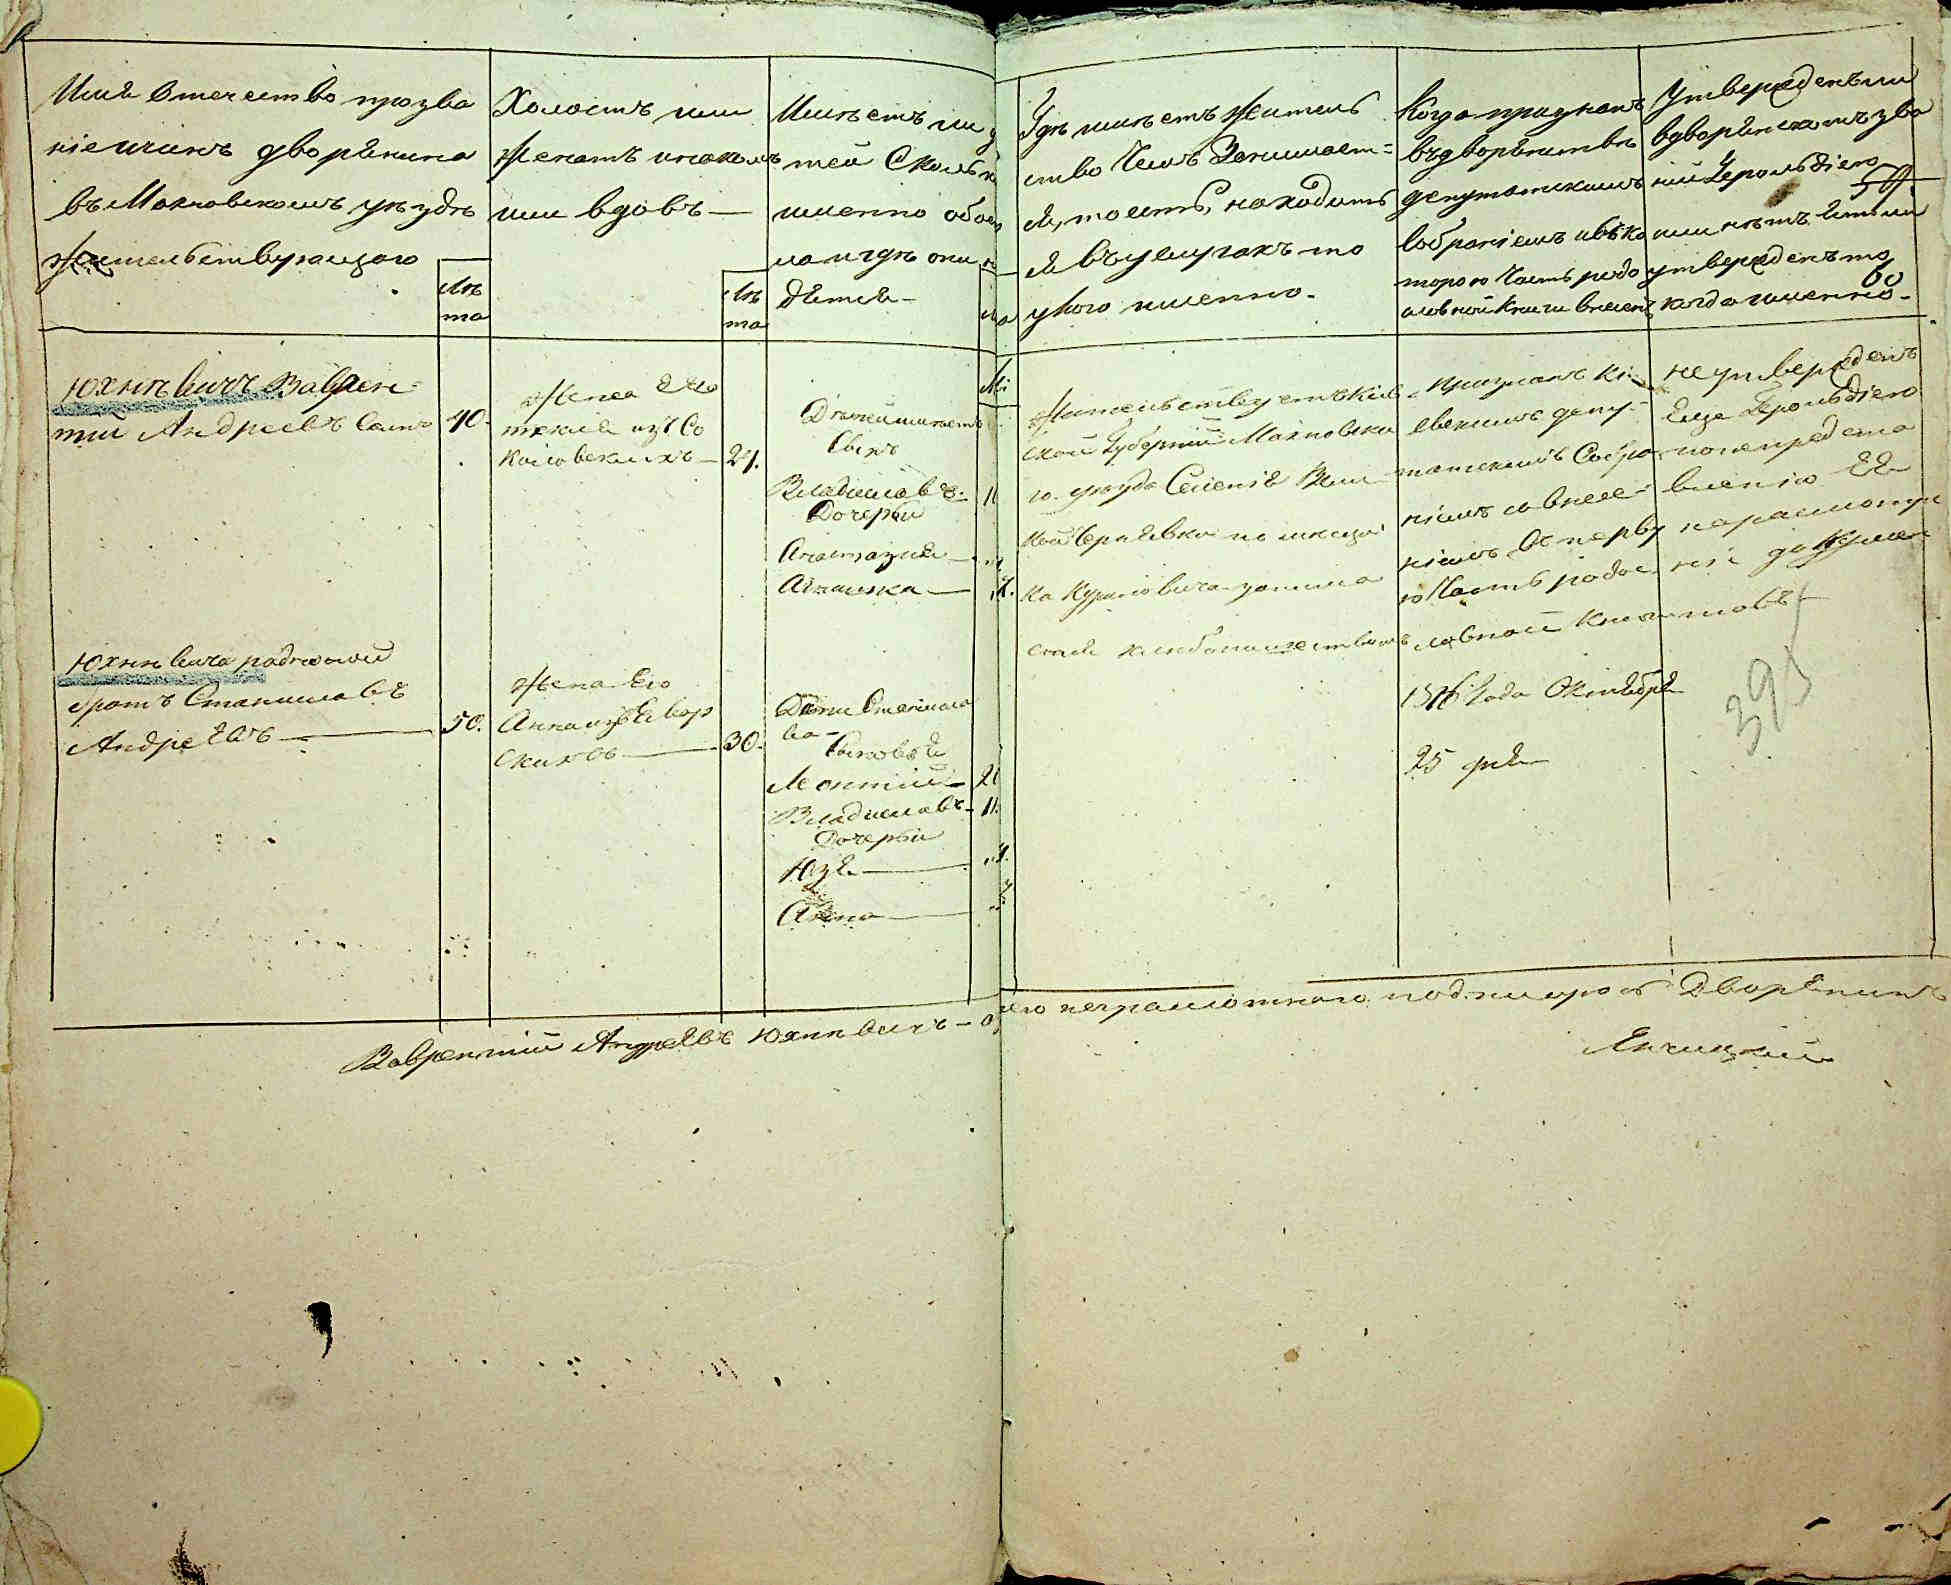 Имя Отчество прозва
ніе и чинъ дворянина
въ Махновскомъ уѣздѣ
жительствующого
лѣ
та
Холостъ или
женатъ и на комъ
или вдовъ —
лѣ
та
Имѣетъ ли д
тей Сколько
именно обоего
пола и гдѣ они
дѣтя —
Гдѣ имѣетъ жительс
тво Чемъ Занимает=
ся, то есть, находитъ
ся въ услугахъ то
у кого именно.
Когда признанъ
въ дворянствѣ
депутатскимъ
собраніемъ и въ ко
торою Часть родо
словной Книги внесенъ
Утвержденъ ли
в дворянскомъ зва
ніи Герольдіею
59.
или нѣтъ Естьли
утвержденъ то
60
когда именно.
Юхнѣвичъ Заврен=
тій Андреевъ Самъ 40.
Жена Его
текля изъ Со
коловскихъ — 24.
Дѣтей имѣетъ
Сынъ
Владиславъ. 11
Дочеръи
Анастазия —
Агнешка —
Жительствуетъ Кіев
ской Губерніи Махновско
го уѣзда Селенія Вели
кой Чернявки помещи
ка Куриловича занима
ется хлебопашествомъ
признанъ Кі
евскимъ депу=
татскимъ Собра
ніемъ со внесе=
ніемъ въ перву
ю Часть родос
ловной Книги
18 6 Года Октября
25 дня
не утвержденъ
Еще Герольдіею
по непредста
вленію Ея
на разсмотре
ніе докумен
товъ —
395
Юхнѣвича родной
братъ Станиславъ
Андреевъ — 50.
Жена Его
Анна изъ Явор
скихъ — 30.
Дети Станисла
ва —
Сыновья
Леонтій — 20
Владиславъ — 11.
Дочеръи
Юзя —
Анна —
Заврентій Андреевъ Юхнѣвичъ — а
его неграмотного подписался Дворянинъ
Янчицкій